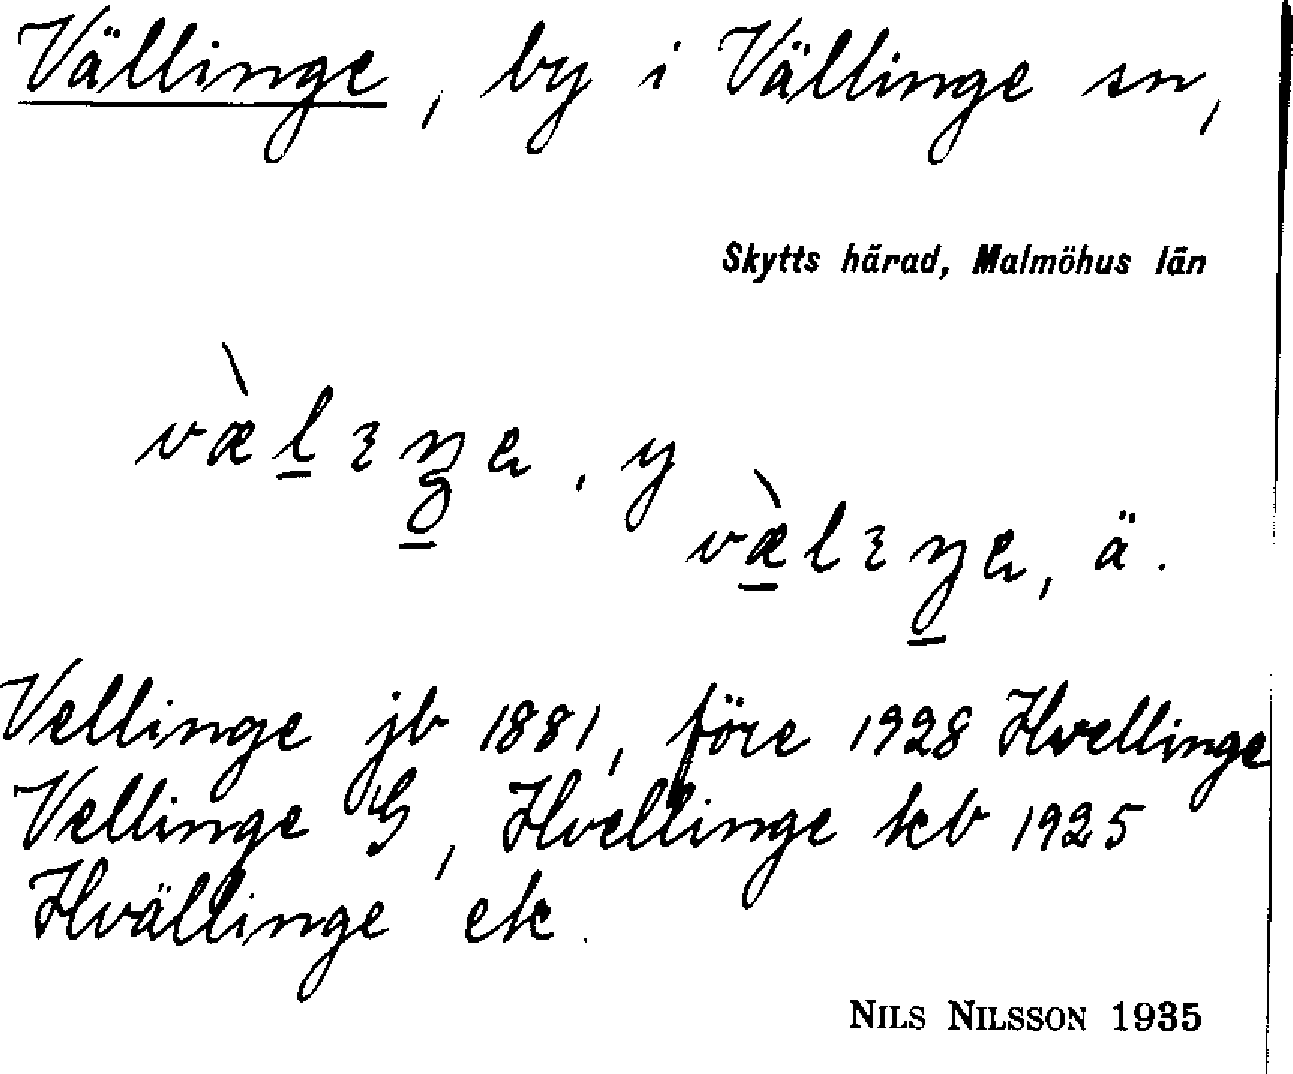 Vällinge, by i Vällinge sn,
Skytts härad, Malmöhus län
væ̀lɪŋe, y
væ̀lɪŋe, ä.
Vellinge jb 1881, före 1928 Hvellinge
Vellinge G, Hvellinge kb 1925
Hvällinge ek.
NILS NILSSON 1935